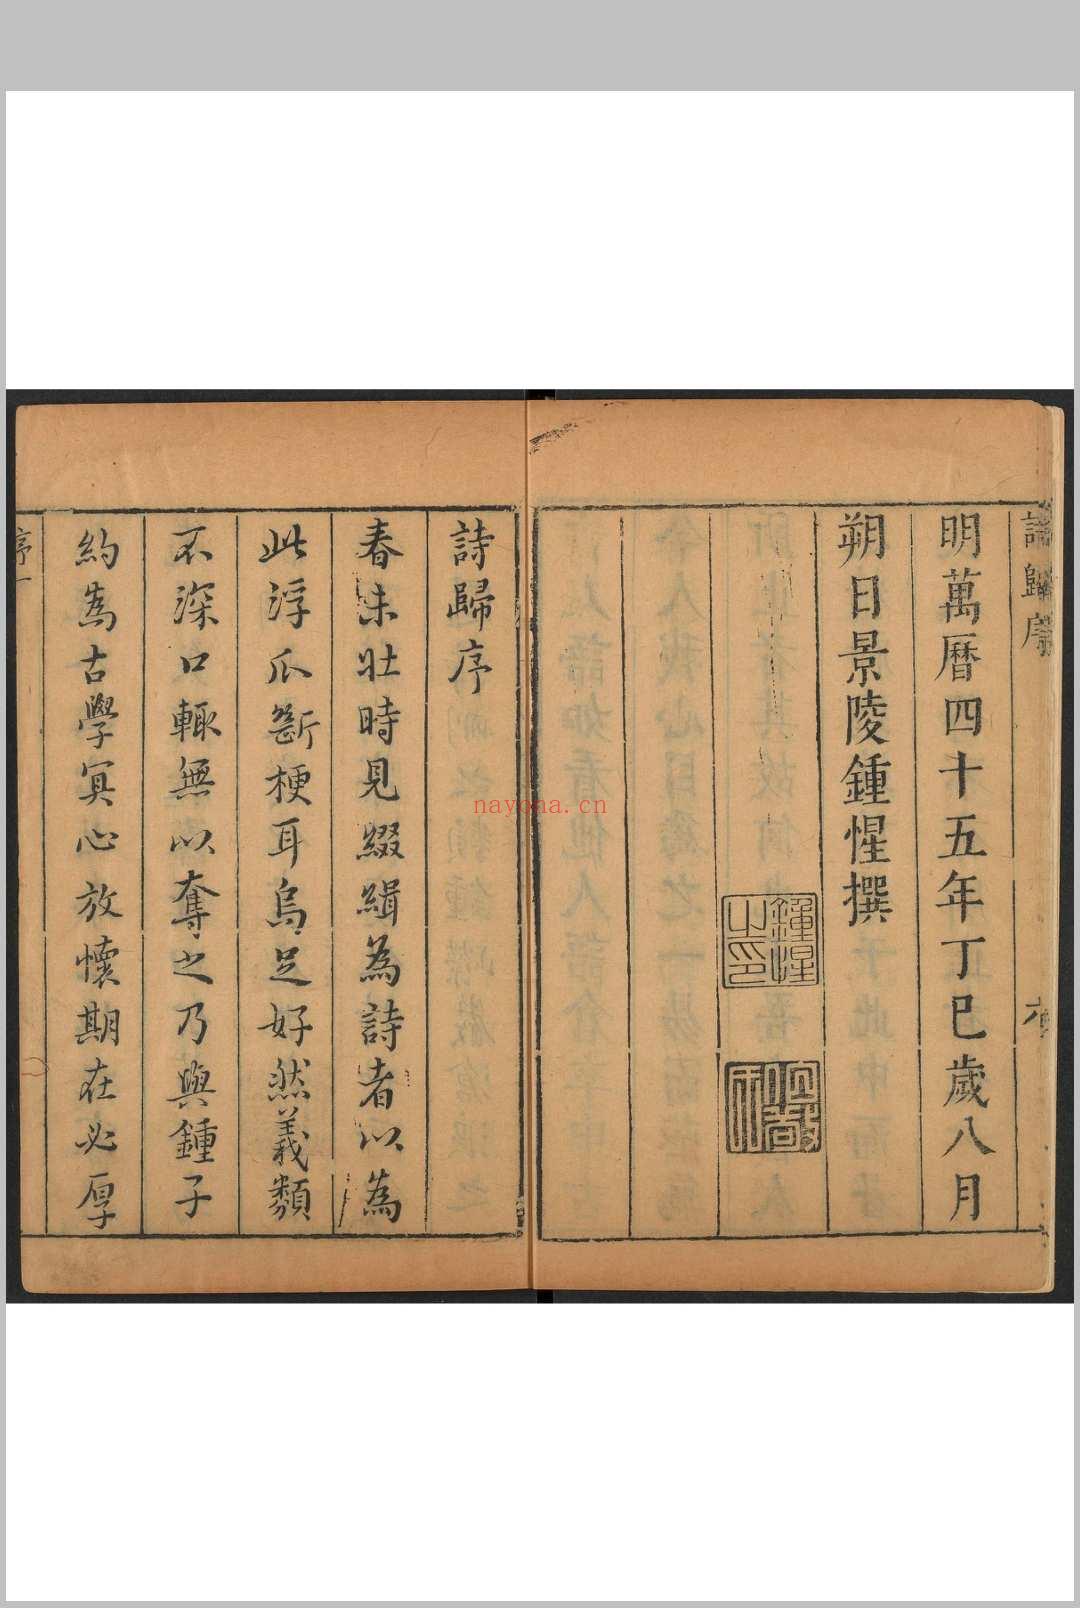 詩歸序
明萬曆四十五年丁巳歲八月
朔日景陵鍾惺撰
鍾惺之印
詩歸序
春未壯時見綴緝為詩者以為
此浮瓜斷梗耳烏足好然義類
不深口輒無以奪之乃與鍾子
約為古學冥心放懷期在必厚
序一
nayona.cn